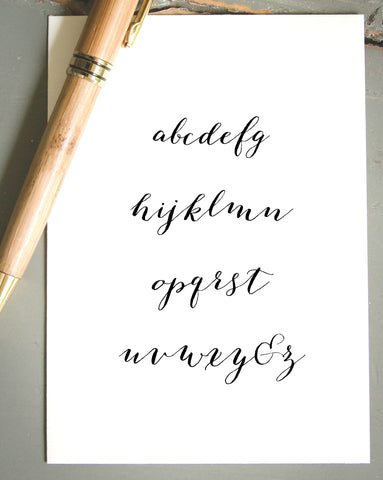 abcdefg
hijklmn
opqrst
uvwxy&z